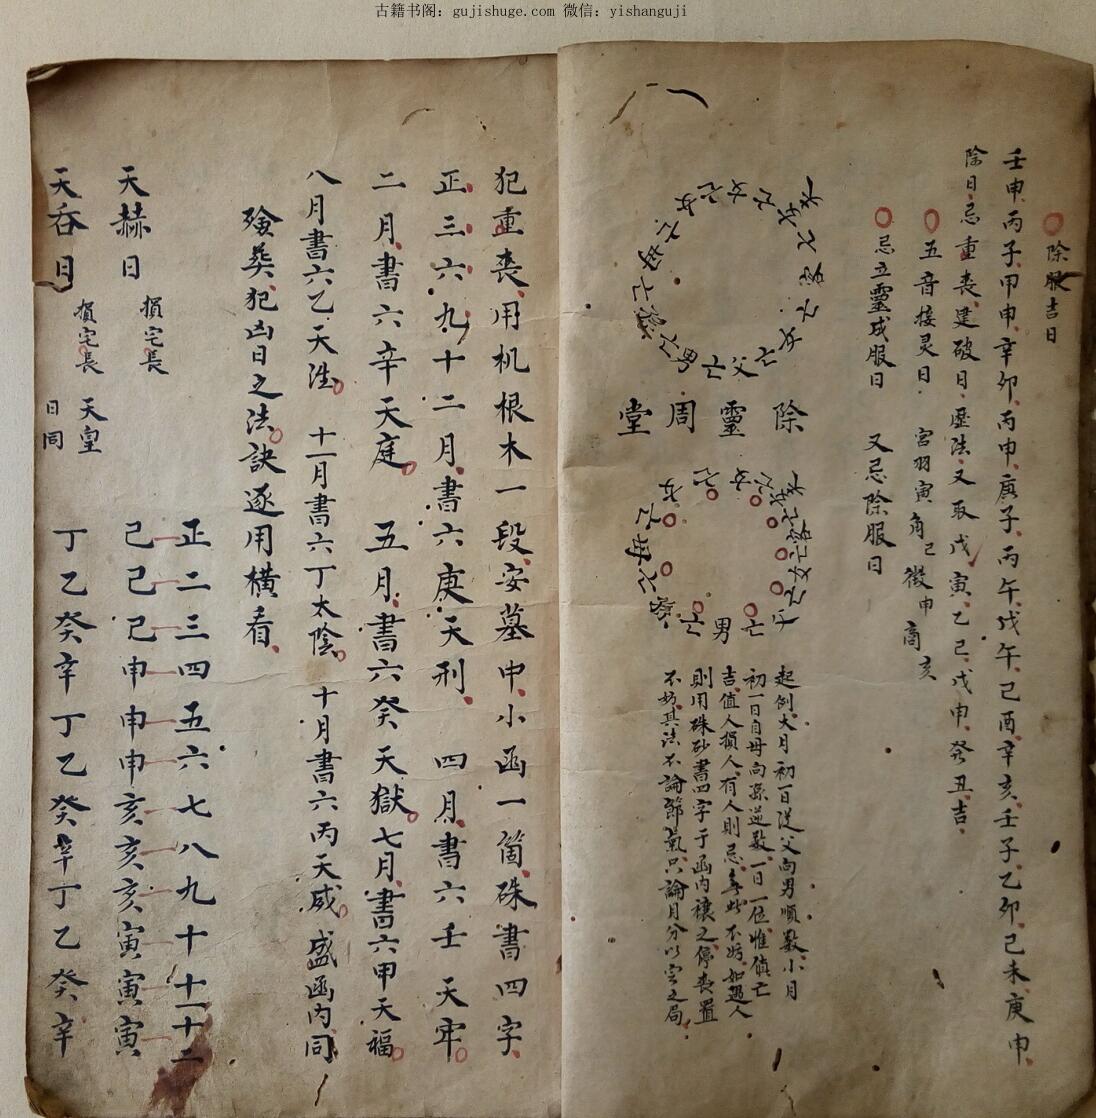 古籍书阁：gujishuge.com 微信：yishanguji
除服吉日
壬申丙子甲申辛卯丙申庚子丙午戊午己酉辛亥壬子乙卯己未庚申
除日忌重喪建破日歷法又取戊寅乙巳戊申癸丑吉
五音接灵日 宮羽寅角巳徵申商亥
忌立靈成服日 又忌除服日
除靈周堂
起例大月初一日從父向男順数小月
初一日自母向孫逆数一日一位惟值亡
吉值人損人有人則忌無此不妨如遇人
則用硃砂書四字于函内禳之停喪置
不妨其法不論節氣只論月分以定之局
犯重喪用机根木一段安墓中小函一箇硃書四字
正三六九十二月書六庚天刑 四月書六壬天牢
二月書六辛天庭 五月書六癸天獄七月書六甲天福
八月書六乙天德 十一月書六丁太陰 十月書六丙天威 盛函内同
殮葬犯凶日之法訣逐用橫看
正二三四五六七八九十十一十二
天赫日 損宅長 己己己申申申亥亥亥寅寅寅
天吞日 損宅長 天皇日同 丁乙癸辛丁乙癸辛丁乙癸辛